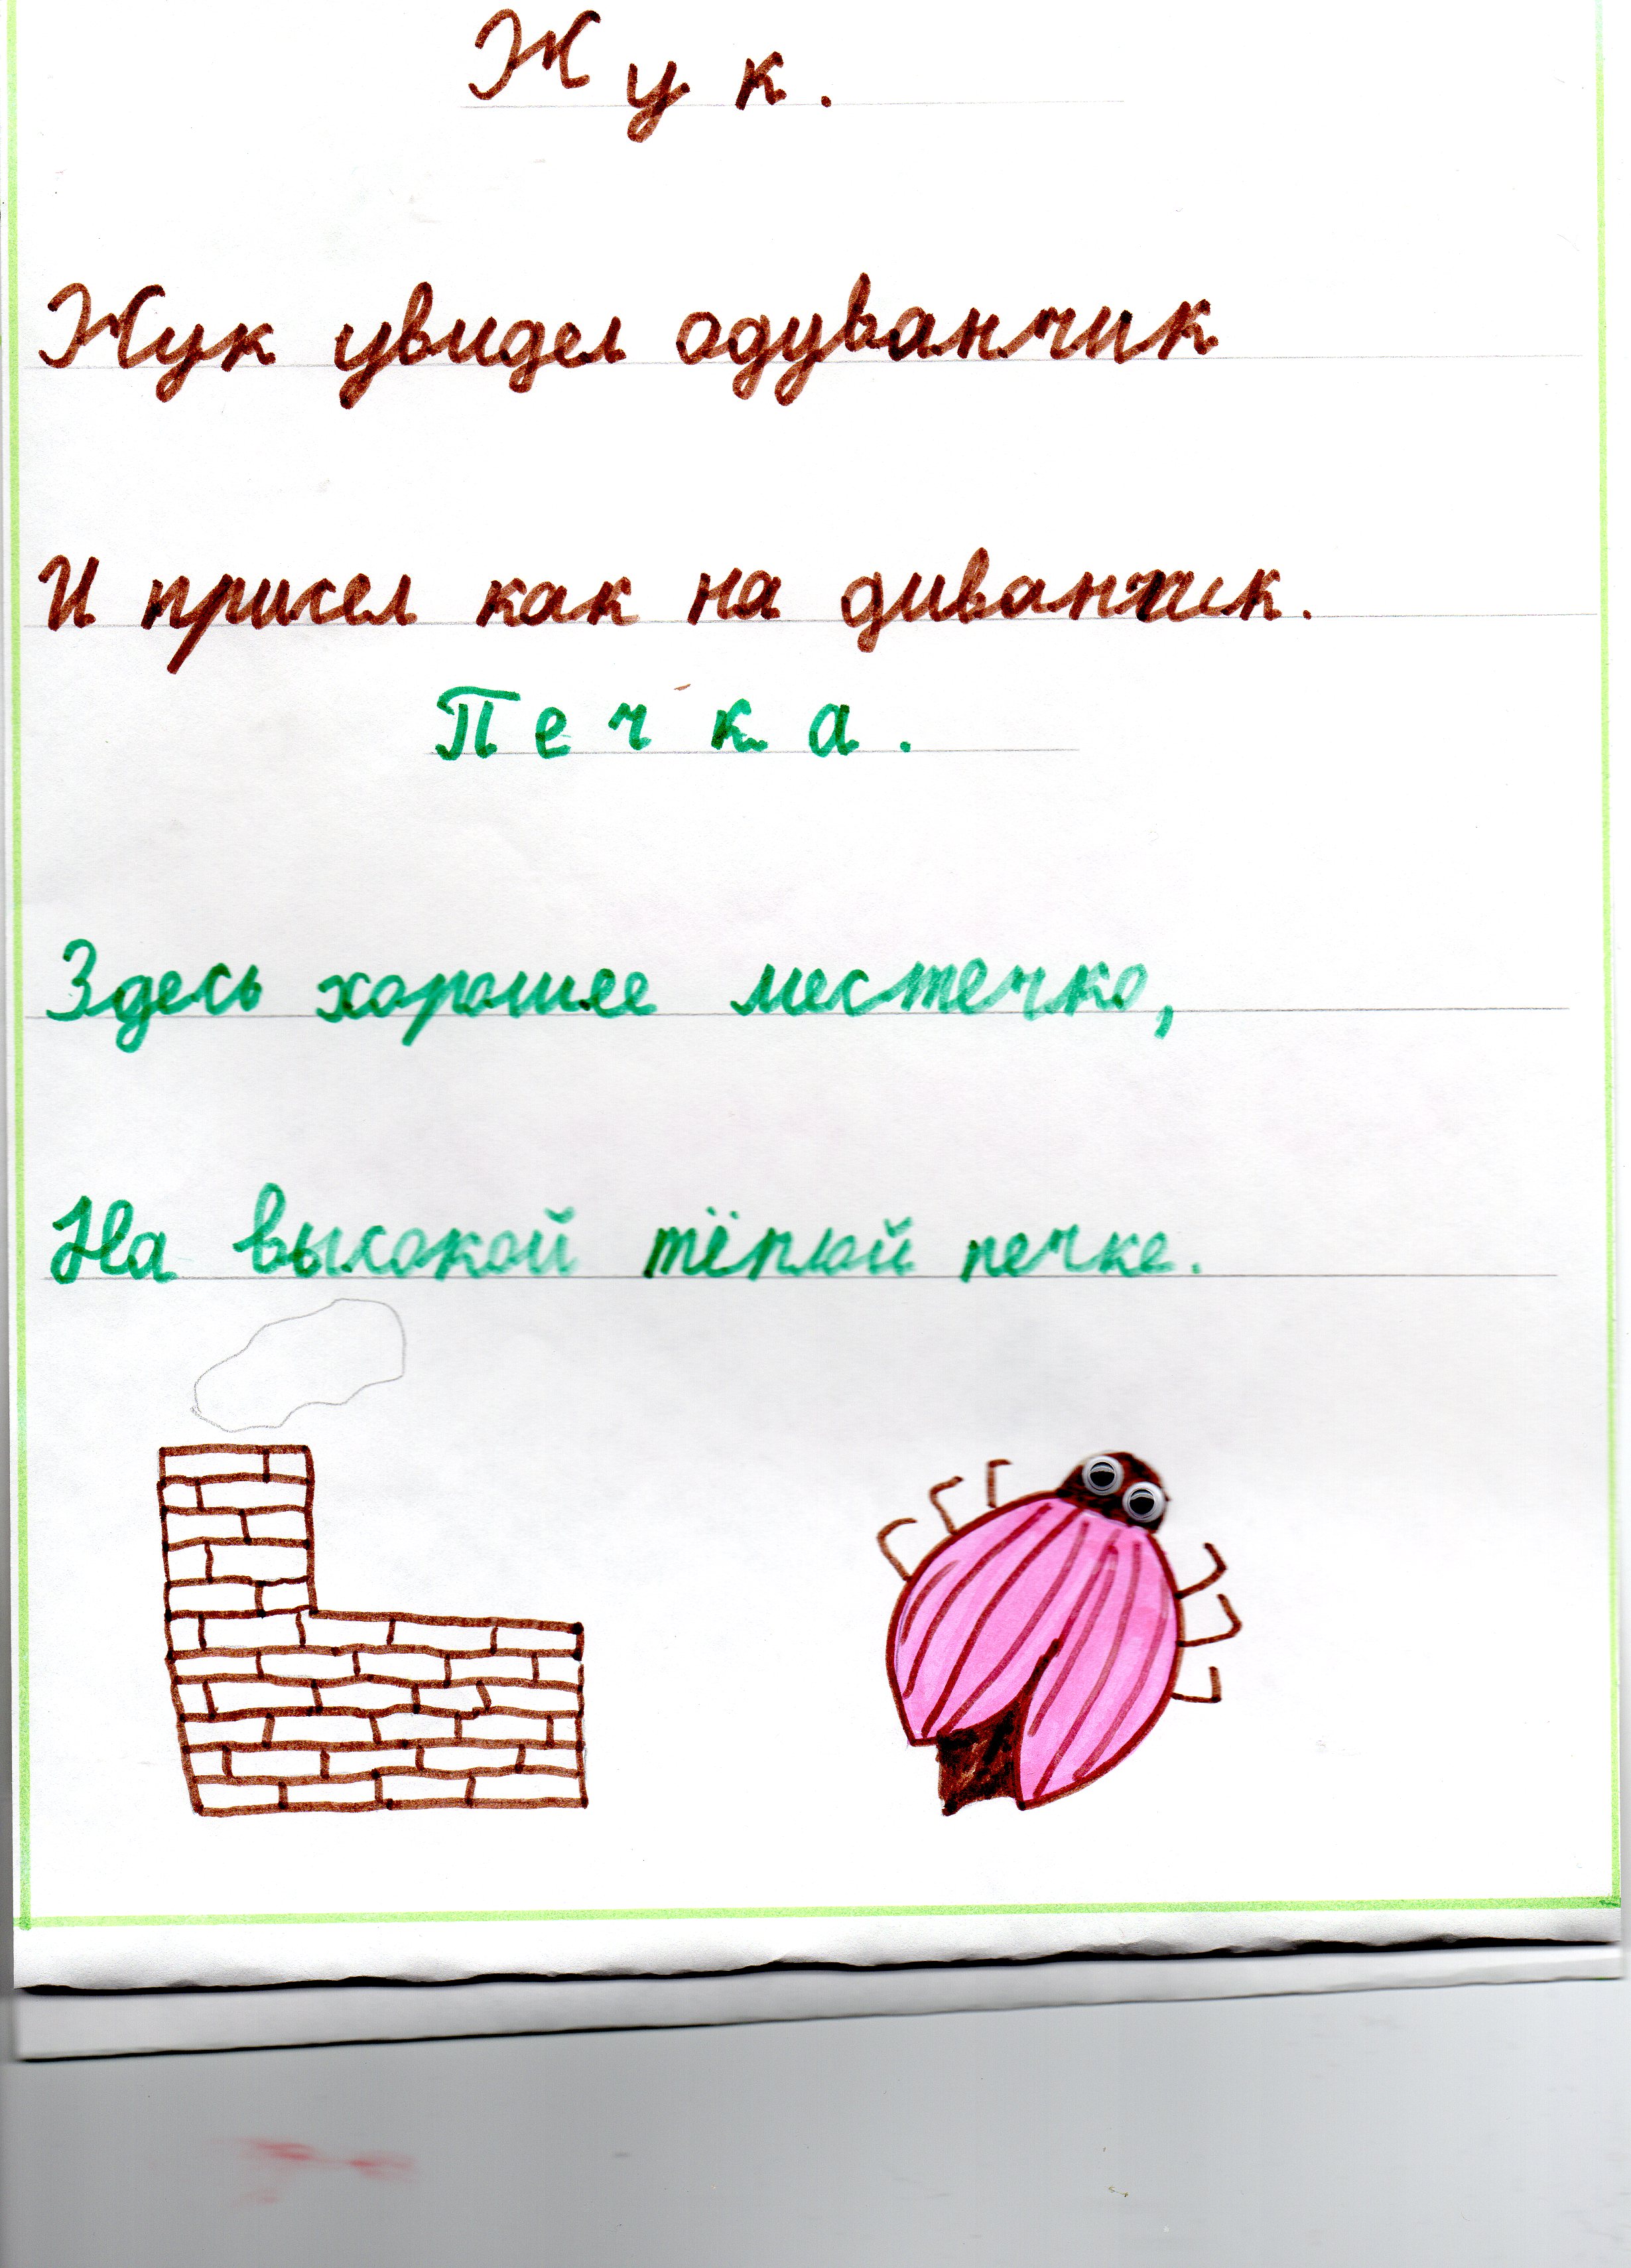 Жук.
Жук увидел одуванчик
И присел как на диванчик.
Печка.
Здесь хорошее местечко,
На высокой тёплой печке.